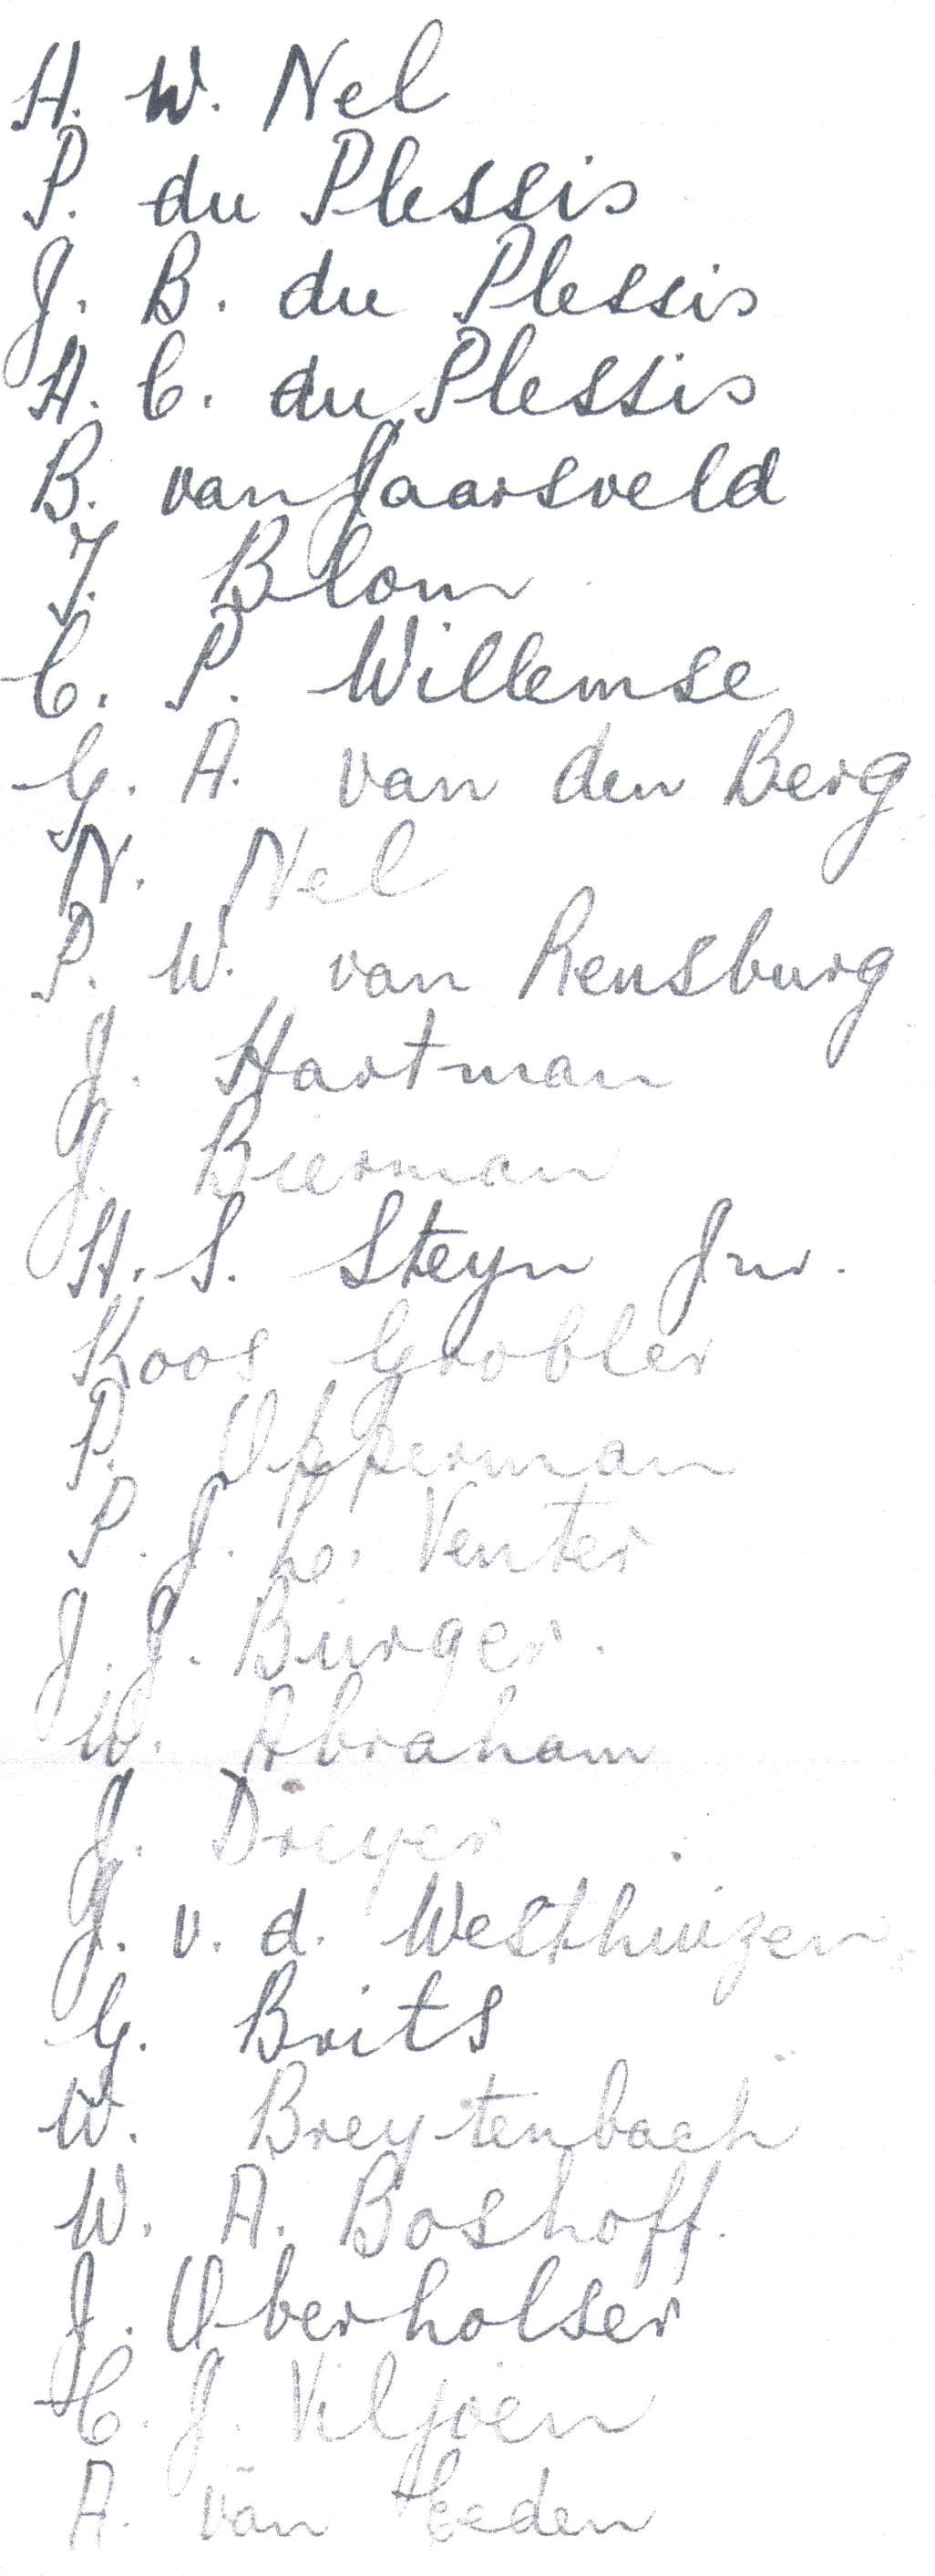 H. W. Nel
P. du Plessis
J. B. du Plessis
H. C. du Plessis
B. van Jaarsveld
J. Blom
C. P. Willemse
G. A. van den Berg
N. Nel
P. W. van Rensburg
J. Hartman
J. Bierman
H. S. Steyn Jnr.
Koos Grobler
P. Opperman
P. J. L. Venter
J. J. Burger.
W. Abraham
J. Dreyer
J. v. d. Westhuizen
G. Brits
W. Breytenbach
W. A. Boshoff.
J. Oberholser
C. J. Viljoen
A. van Eeden